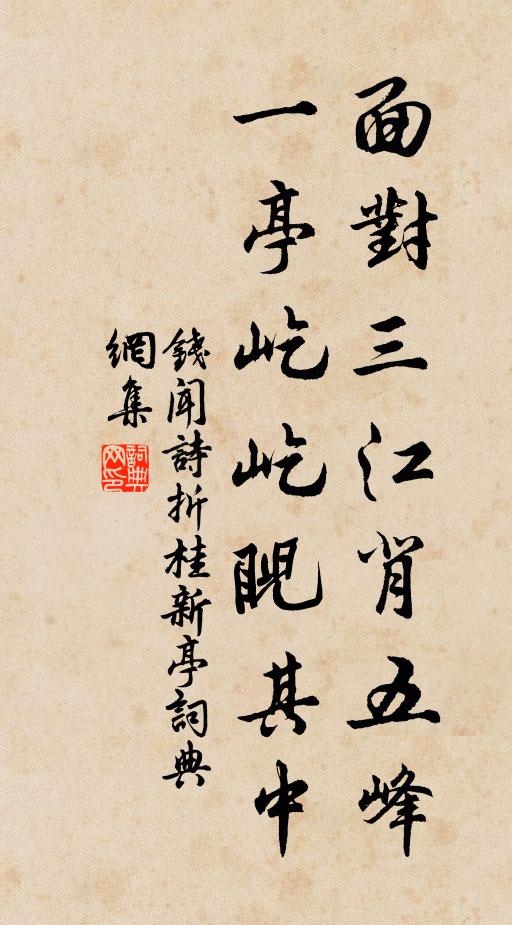 面對三江肖五峰
一亭屹屹睨其中
錢聞詩折桂新亭詞典
網集
詞典
网印